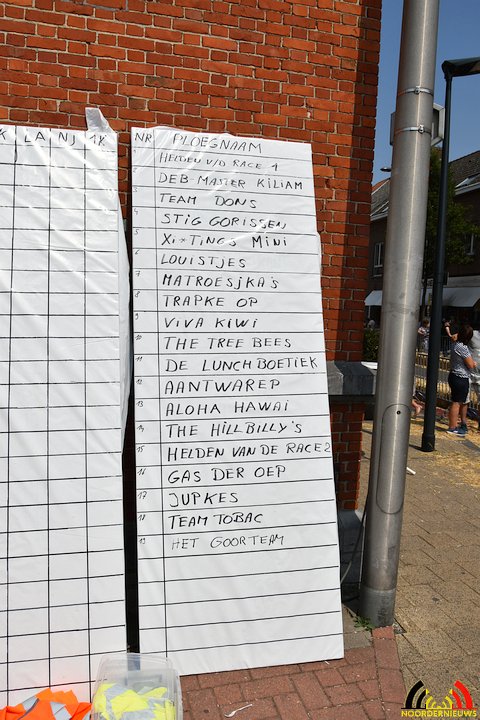 K LA NJ 1K
NR PLOEGNAAM
1 HELDEN V/D RACE 1
2 DEB-MASTER KILIAM
3 TEAM DONS
4 STIG GORISSEN
5 XI*TINGS MINI
6 LOUISTJES
7 MATROESJKA'S
8 TRAPKE OP
9 VIVA KIWI
10 THE TREE BEES
11 DE LUNCHBOETIEK
12 AANTWAREP
13 ALOHA HAWAI
14 THE HILLBILLY'S
15 HELDEN VAN DE RACE 2
16 GAS DER OEP
17 JUPKES
18 TEAM TOBAC
19 HET GOORTEAM
NOORDERNIEUWS